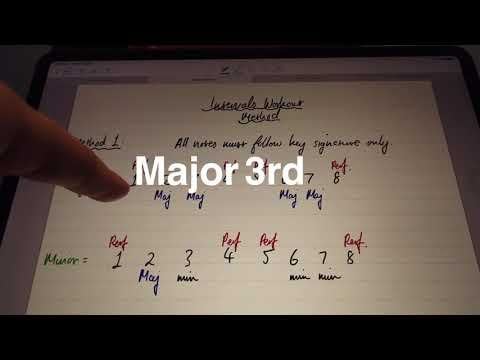 Intervals Workout
Method
Method 1: All notes must follow key signature only.
Perf.
Major 3rd 7 8
Maj Maj Maj Maj
Perf Perf Perf Perf.
Minor = 1 2 3 4 5 6 7 8
Maj min min min